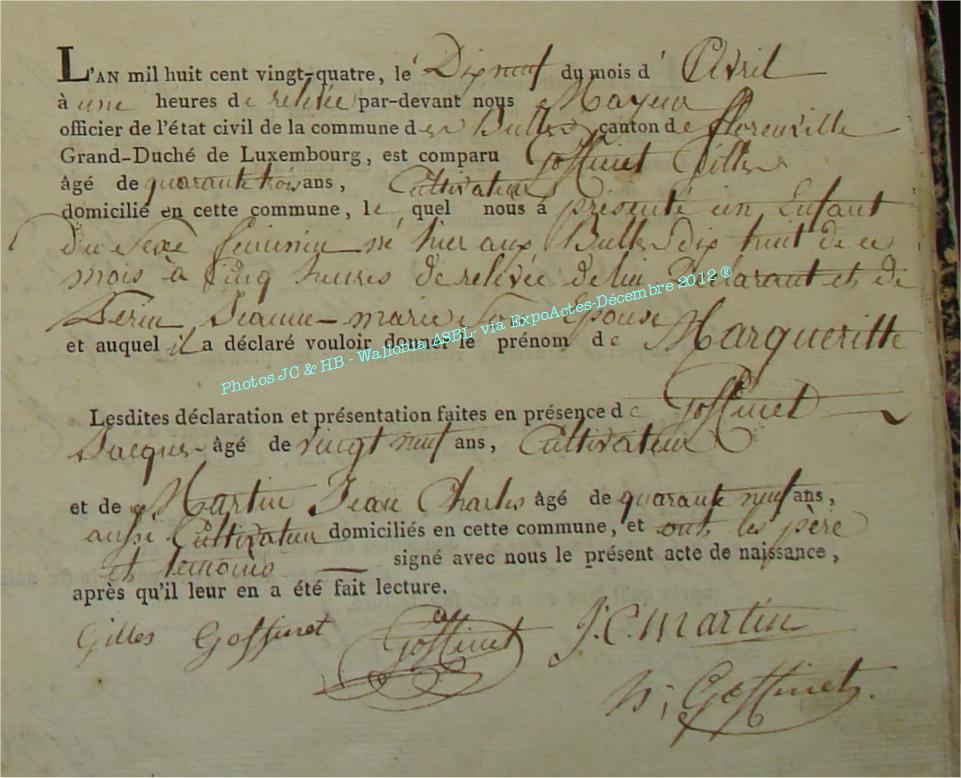 L'AN mil huit cent vingt-quatre, le Dix neuf du mois d' Avril
à une heures de relevée par-devant nous Mayeur
officier de l'état civil de la commune des Bulles canton de florenville
Grand-Duché de Luxembourg, est comparu Goffinet Gilles
âgé de quarante trois ans, Cultivateur
domicilié en cette commune, le quel nous a présenté un Enfant
du sexe féminin né hier aux Bulles dix huit de ce
mois à Cinq heures de relevée de lui Déclarant et de
Jeanne-marie Son Epouse
et auquel il a déclaré vouloir donner le prénom de Margueritte
Photos JC & HB - Wallonia ASBL- via ExpoActes-Décembre 2012 ®
Lesdites déclaration et présentation faites en présence de Goffinet
Jacques âgé de vingt neuf ans, Cultivateur
et de Martin Jean Charles âgé de quarante neuf ans,
aussi Cultivateur domiciliés en cette commune, et ont les père
et temoins signé avec nous le présent acte de naissance,
après qu'il leur en a été fait lecture.
Gilles Goffinet Goffinet J.C. Martin
Goffinet.